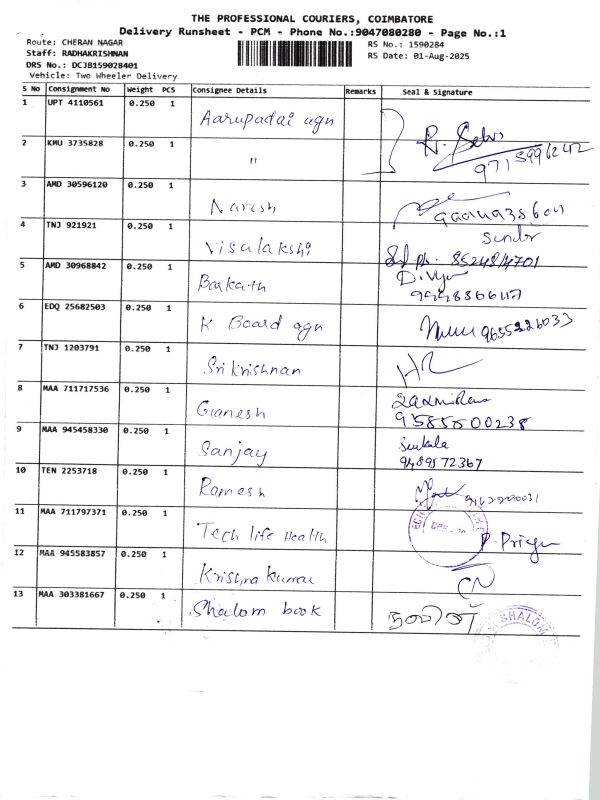 THE PROFESSIONAL COURIERS, COIMBATORE
Delivery Runsheet - PCM - Phone No.:9047080280 - Page No.:1
Route: CHERAN NAGAR
RS No.: 1590284
Staff: RADHAKRISHNAN
RS Date: 01-Aug-2025
DRS No.: DCJB159028401
Vehicle: Two Wheeler Delivery
S No Consignment No Weight PCS Consignee Details Remarks Seal & Signature
1 UPT 4110561 0.250 1 Aarupadai agn
2 KMU 3735828 0.250 1 "
3 AMD 30596120 0.250 1 Naresh
4 TNJ 921921 0.250 1 Visalakshi Sundar
5 AMD 30968842 0.250 1 Barkath
6 EDQ 25682503 0.250 1 K Board agn 9655226033
7 TNJ 1203791 0.250 1 Sri krishnan
8 MAA 711717536 0.250 1 Ganesh
9585500238
9 MAA 945458330 0.250 1 Sanjay
9489572367
10 TEN 2253718 0.250 1 Ramesh
11 MAA 711797371 0.250 1 Tech life Health P. Priya
12 MAA 945583857 0.250 1 Krishna kumar
13 MAA 303381667 0.250 1 Shalom book நவீன்
SHALOM